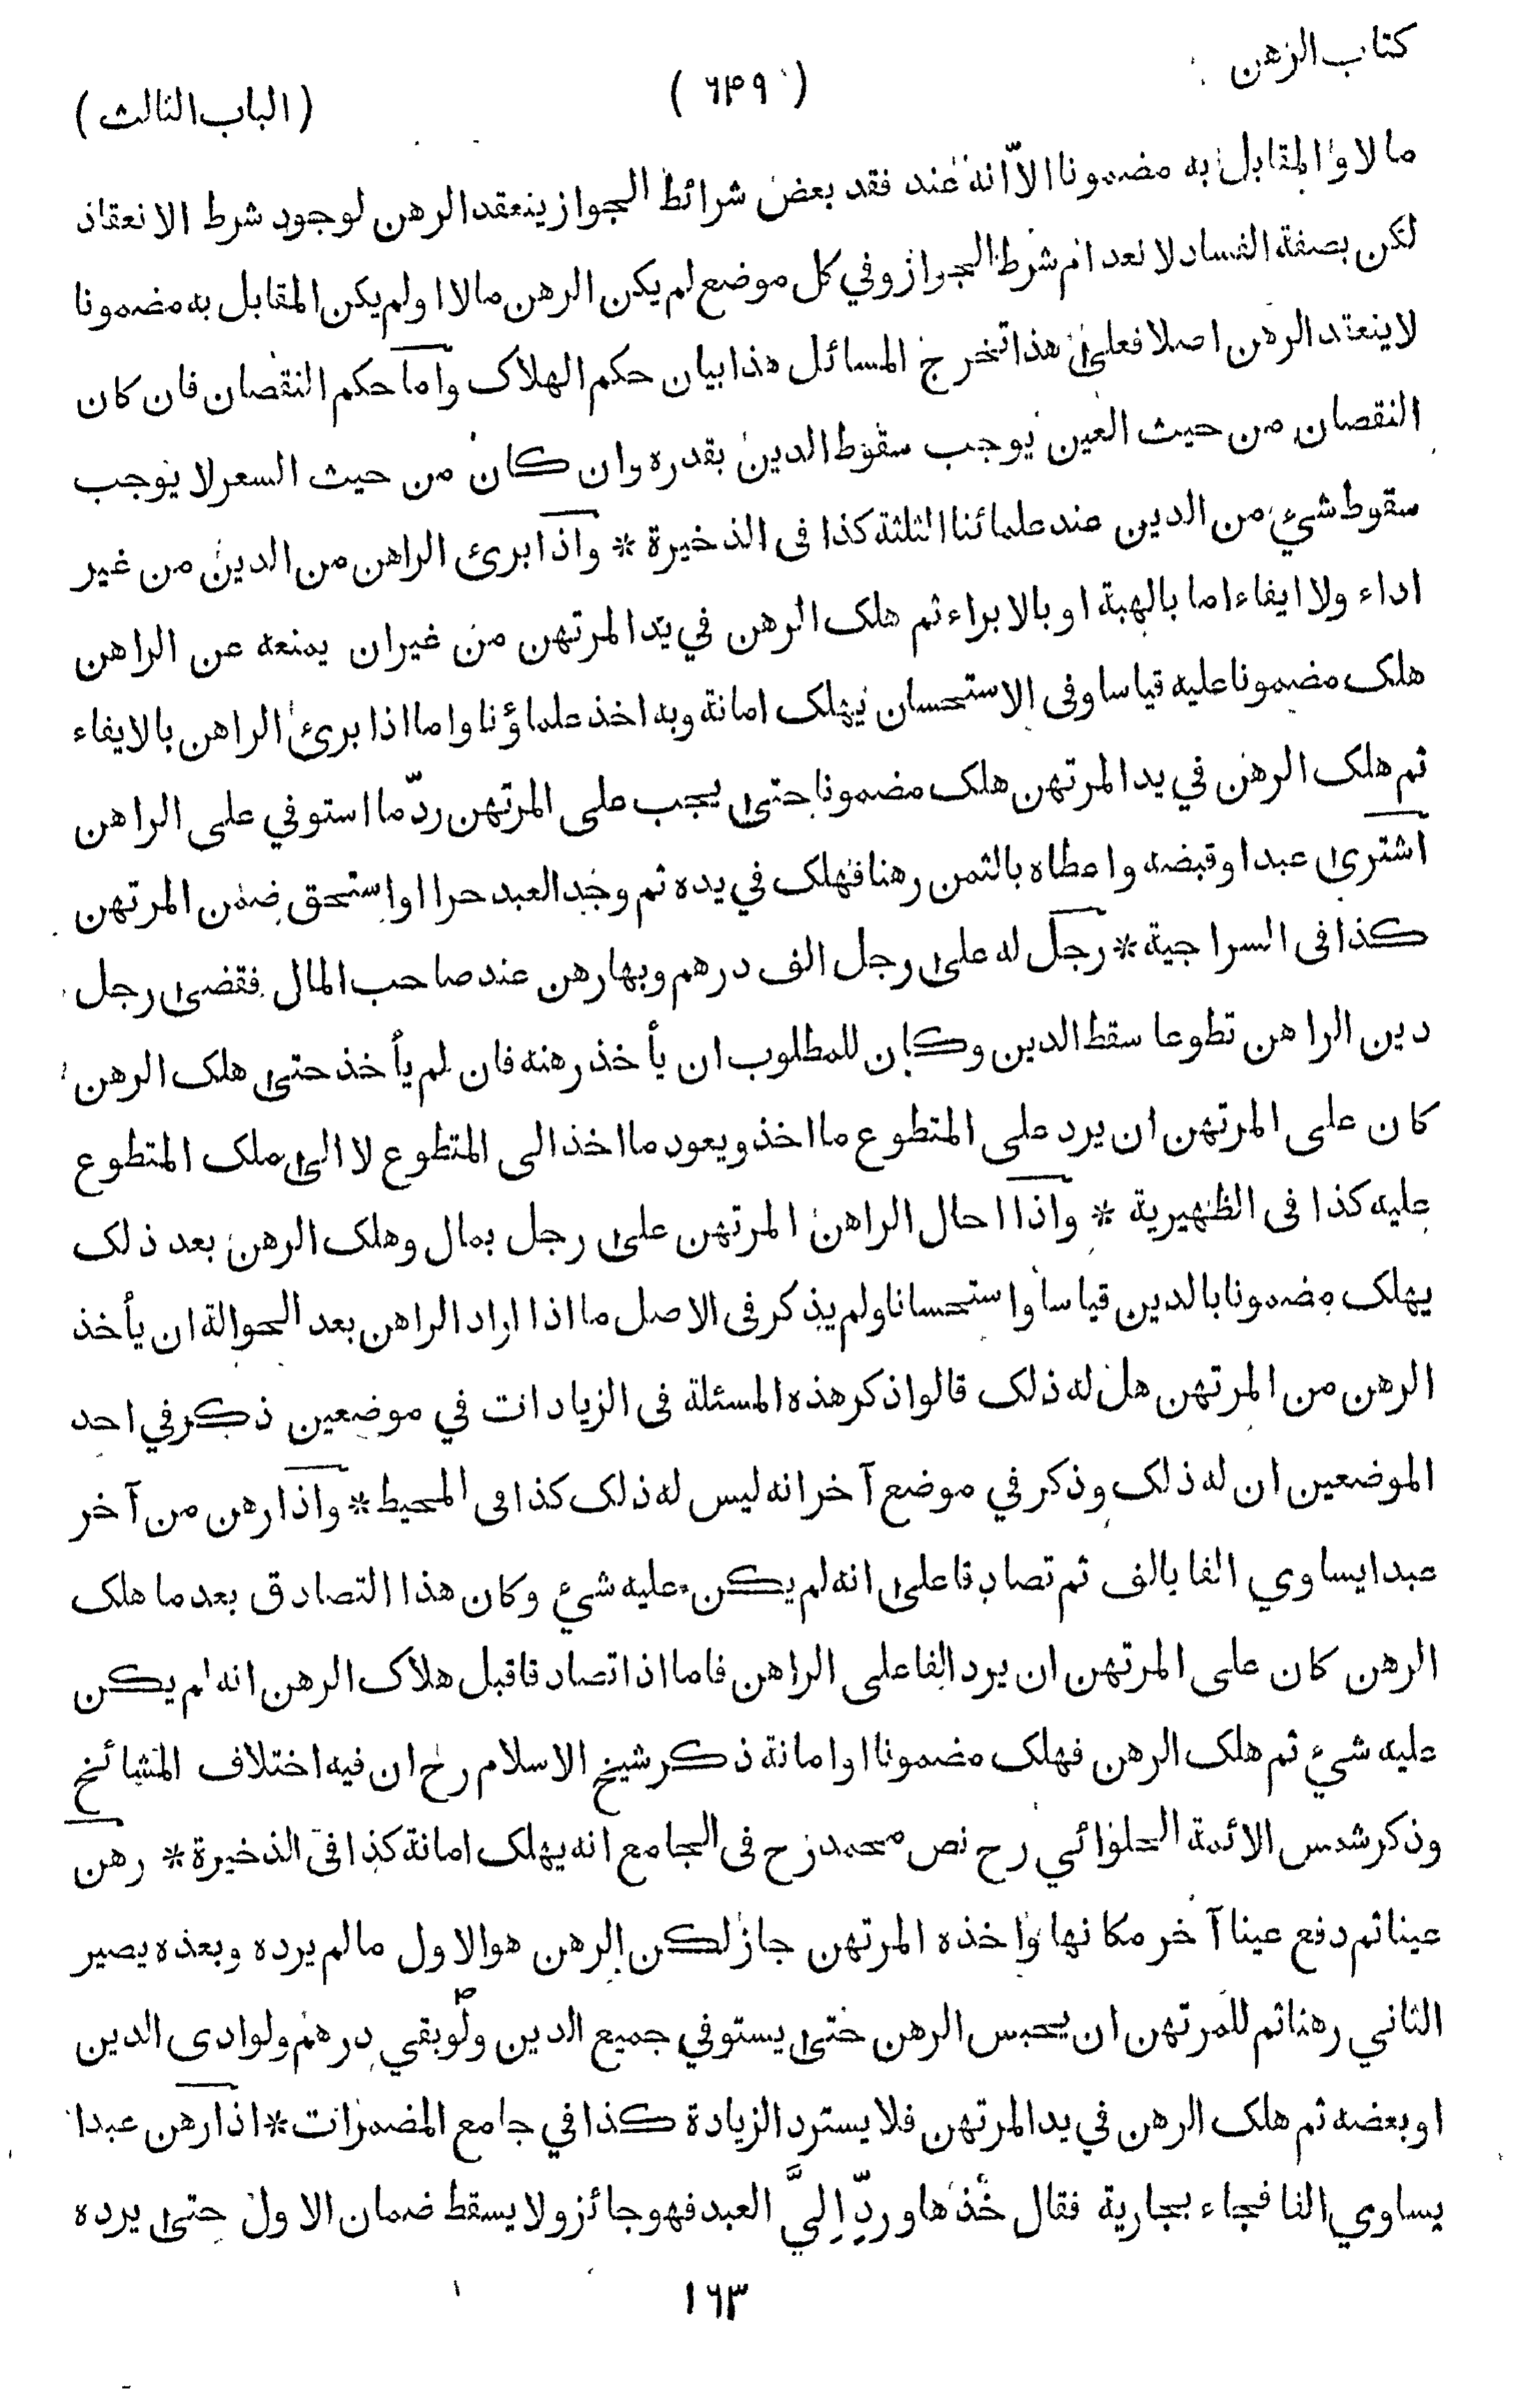 كتاب الرهن
( ٦٤٩ )
( الباب الثالث )
مالا والمقابل به مضمونا الاّ انه عند فقد بعض شرائط الجواز ينعقد الرهن لوجود شرط الانعقاد
لكن بصفة الفساد لانعدام شرط الجواز وفي كل موضع لم يكن الرهن مالا اولم يكن المقابل به مضمونا
لا ينعقد الرهن اصلا فعلى هذا تخرج المسائل هذا بيان حكم الهلاك واما حكم النقصان فان كان
النقصان من حيث العين يوجب سقوط الدين بقدره وان كان من حيث السعر لا يوجب
سقوط شيء من الدين عند علمائنا الثلثة كذا فى الذخيرة * واذا برئ الراهن من الدين من غير
اداء ولا ايفاء اما بالهبة او بالابراء ثم هلك الرهن في يد المرتهن من غير ان يمنعه عن الراهن
هلك مضمونا عليه قياسا وفى الاستحسان يهلك امانة وبه اخذ علماؤنا واما اذا برئ الراهن بالايفاء
ثم هلك الرهن في يد المرتهن هلك مضمونا حتى يجب على المرتهن ردّ ما استوفي على الراهن
اشترى عبدا وقبضه واعطاه بالثمن رهنا فهلك في يده ثم وجد العبد حرا اواستحق ضمن المرتهن
كذا فى السراجية * رجل له على رجل الف درهم وبها رهن عند صاحب المال فقضى رجل
دين الراهن تطوعا سقط الدين وكان للمطلوب ان يأخذ رهنه فان لم يأخذ حتى هلك الرهن
كان على المرتهن ان يرد على المتطوع ما اخذ ويعود ما اخذ الى المتطوع لا الى ملك المتطوع
عليه كذا فى الظهيرية * واذا احال الراهن المرتهن على رجل بمال وهلك الرهن بعد ذلك
يهلك مضمونا بالدين قياسا واستحسانا ولم يذكر فى الاصل ما اذا اراد الراهن بعد الحوالة ان يأخذ
الرهن من المرتهن هل له ذلك قالوا ذكر هذه المسئلة فى الزيادات في موضعين ذكر في احد
الموضعين ان له ذلك وذكر في موضع آخر انه ليس له ذلك كذا فى المحيط * واذا رهن من آخر
عبدا يساوي الفا بالف ثم تصادقا على انه لم يكن عليه شئ وكان هذا التصادق بعد ما هلك
الرهن كان على المرتهن ان يرد الفا على الراهن فاما اذا تصادقا قبل هلاك الرهن انه لم يكن
عليه شيء ثم هلك الرهن فهلك مضمونا او امانة ذكر شيخ الاسلام رح ان فيه اختلاف المشائخ
وذكر شمس الائمة الحلوائي رح نص محمد رح فى الجامع انه يهلك امانة كذا فى الذخيرة * رهن
عينا ثم دفع عينا آخر مكانها واخذه المرتهن جاز لكن الرهن هو الاول ما لم يرده وبعده يصير
الثاني رهنا ثم للمرتهن ان يحبس الرهن حتى يستوفي جميع الدين ولو بقي درهم ولو ادى الدين
او بعضه ثم هلك الرهن في يد المرتهن فلا يسترد الزيادة كذا في جامع المضمرات * اذا رهن عبدا
يساوي الفا فجاء بجارية فقال خُذْها وردِّ اِليَّ العبد فهو جائز ولا يسقط ضمان الاول حتى يرده
١٦٣